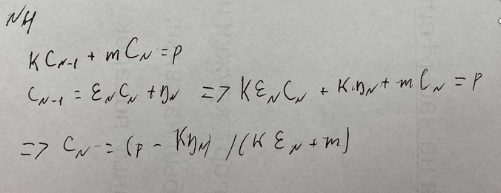 NH
K C_{N-1} + m C_N = p
C_{N-1} = ε_N C_N + η_N => K ε_N C_N + K·η_N + m C_N = p
=> C_N = (p - K η_N) / (K ε_N + m)